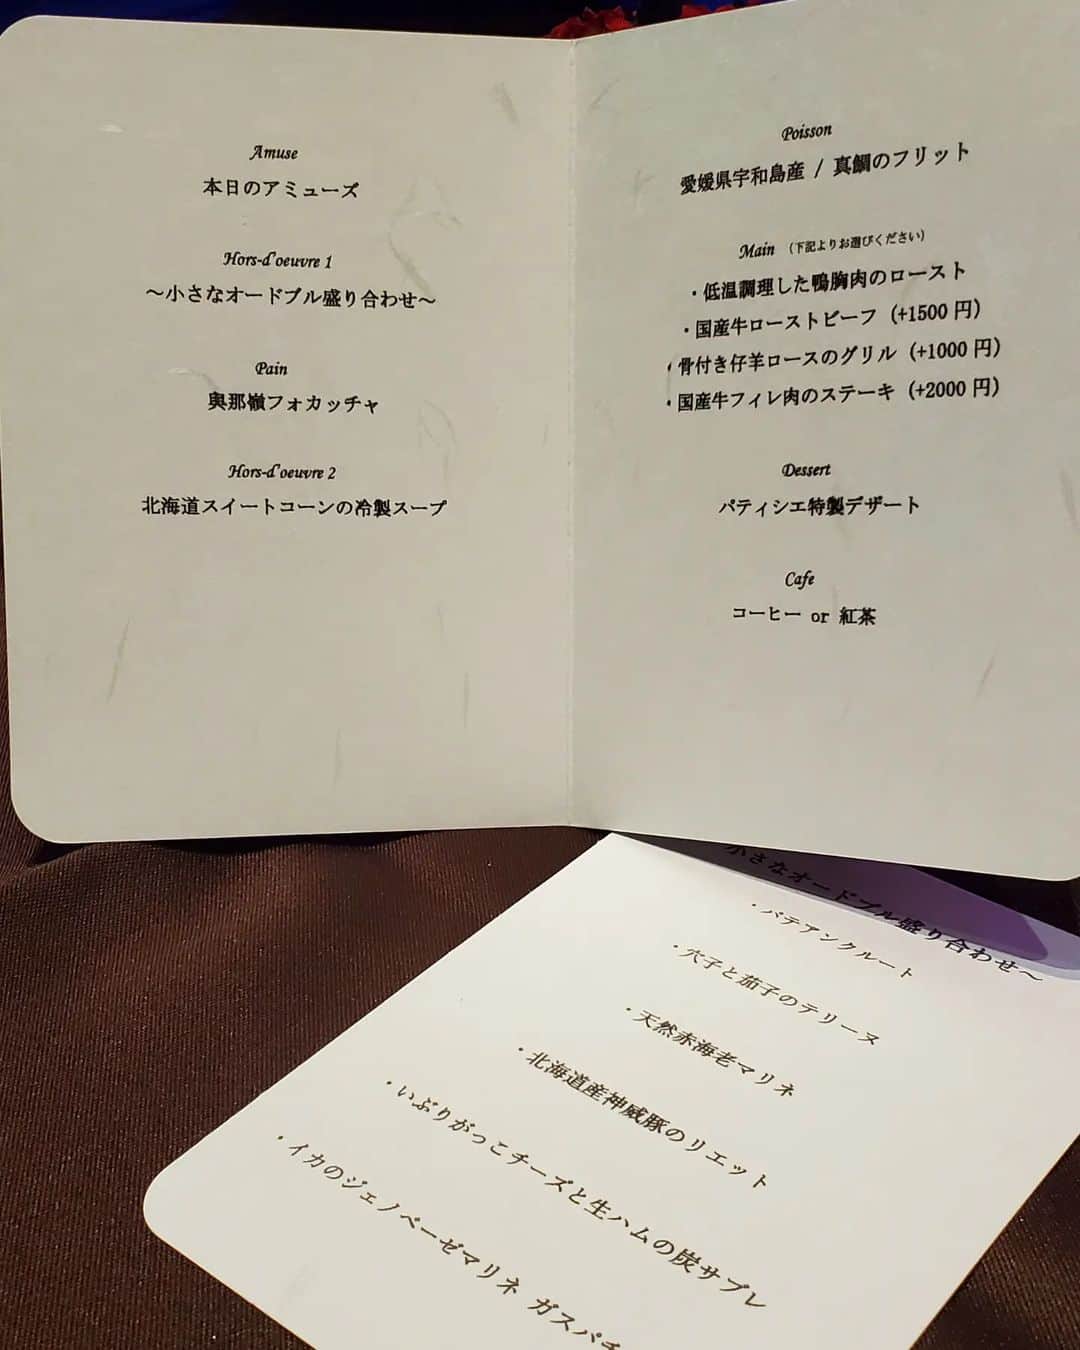 Amuse
本日のアミューズ
Hors-d'oeuvre 1
～小さなオードブル盛り合わせ～
Pain
與那嶺フォカッチャ
Hors-d'oeuvre 2
北海道スイートコーンの冷製スープ
Poisson
愛媛県宇和島産 / 真鯛のフリット
Main （下記よりお選びください）
・低温調理した鴨胸肉のロースト
・国産牛ローストビーフ (+1500 円)
・骨付き仔羊ロースのグリル (+1000 円)
・国産牛フィレ肉のステーキ (+2000 円)
Dessert
パティシエ特製デザート
Cafe
コーヒー or 紅茶
小さなオードブル盛り合わせ～
・パテアンクルート
・穴子と茄子のテリーヌ
・天然赤海老マリネ
・北海道産神威豚のリエット
・いぶりがっこチーズと生ハムの炭サブレ
・イカのジェノベーゼマリネ ガスパチ